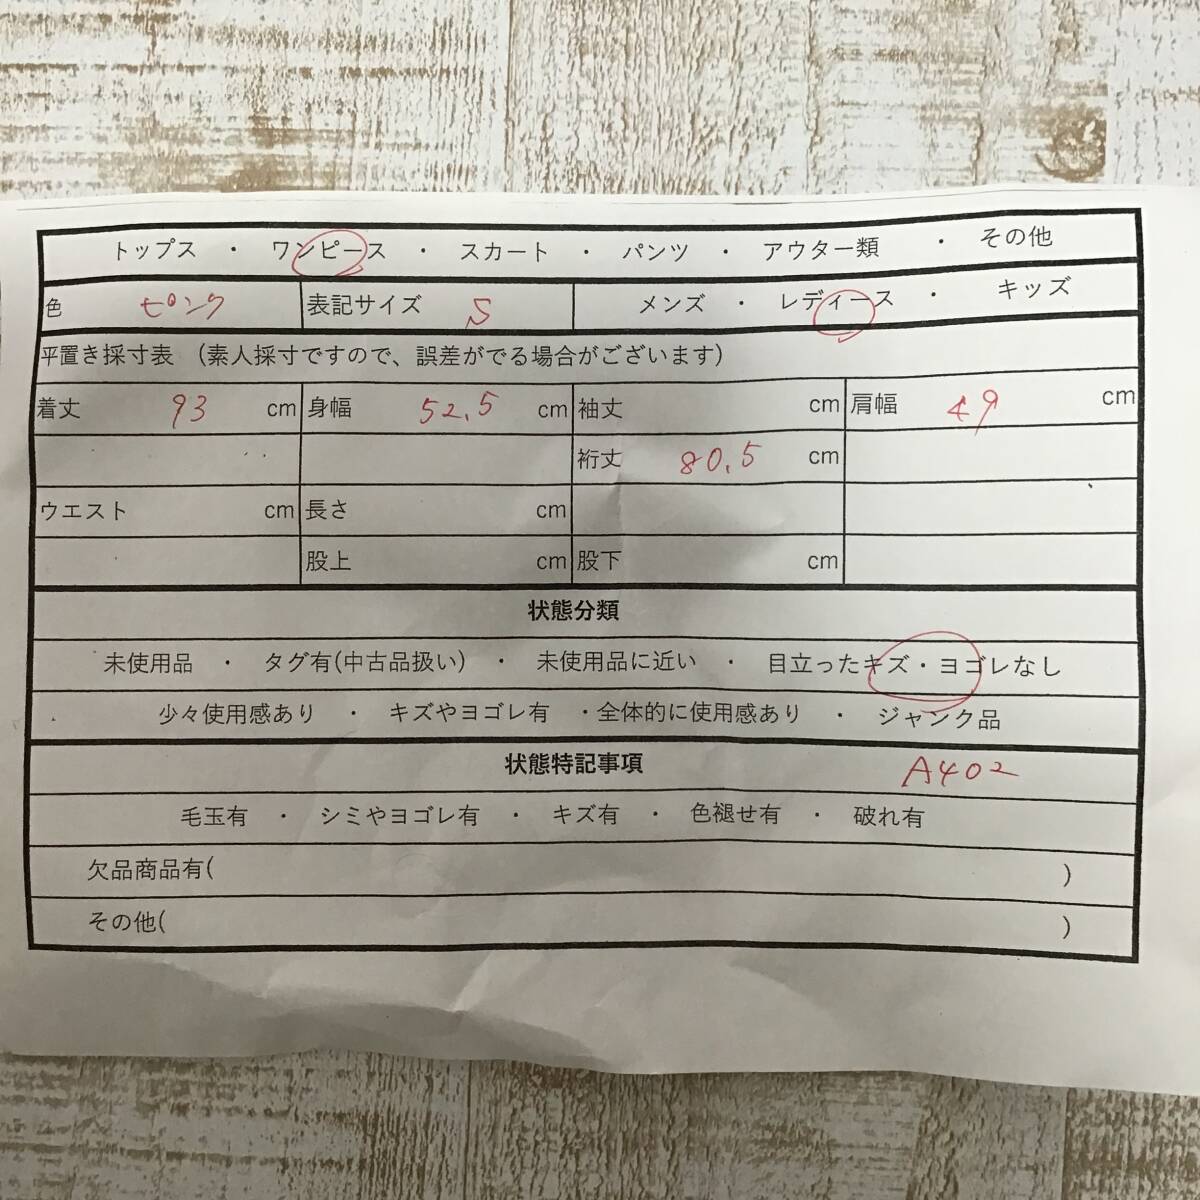 トップス ・ ワンピース ・ スカート ・ パンツ ・ アウター類 ・ その他
色 ピンク 表記サイズ S メンズ ・ レディース ・ キッズ
平置き採寸表 (素人採寸ですので、誤差がでる場合がございます)
着丈 93 cm 身幅 52.5 cm 袖丈 cm 肩幅 49 cm
裄丈 80.5 cm
ウエスト cm 長さ cm
股上 cm 股下 cm
状態分類
未使用品 ・ タグ有(中古品扱い) ・ 未使用品に近い ・ 目立ったキズ・ヨゴレなし
少々使用感あり ・ キズやヨゴレ有 ・全体的に使用感あり ・ ジャンク品
状態特記事項 A402
毛玉有 ・ シミやヨゴレ有 ・ キズ有 ・ 色褪せ有 ・ 破れ有
欠品商品有( )
その他( )